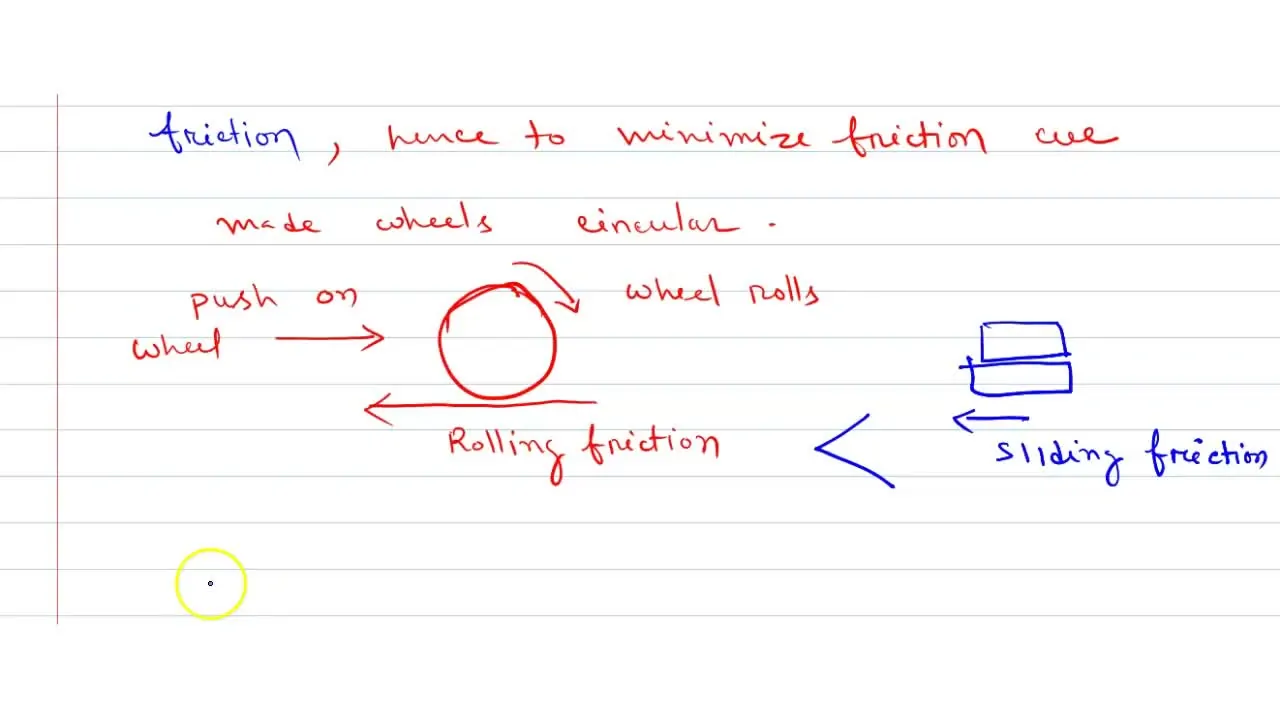 friction, hence to minimize friction we
made wheels circular.
push on
wheel
wheel rolls
Rolling friction
<
sliding friction